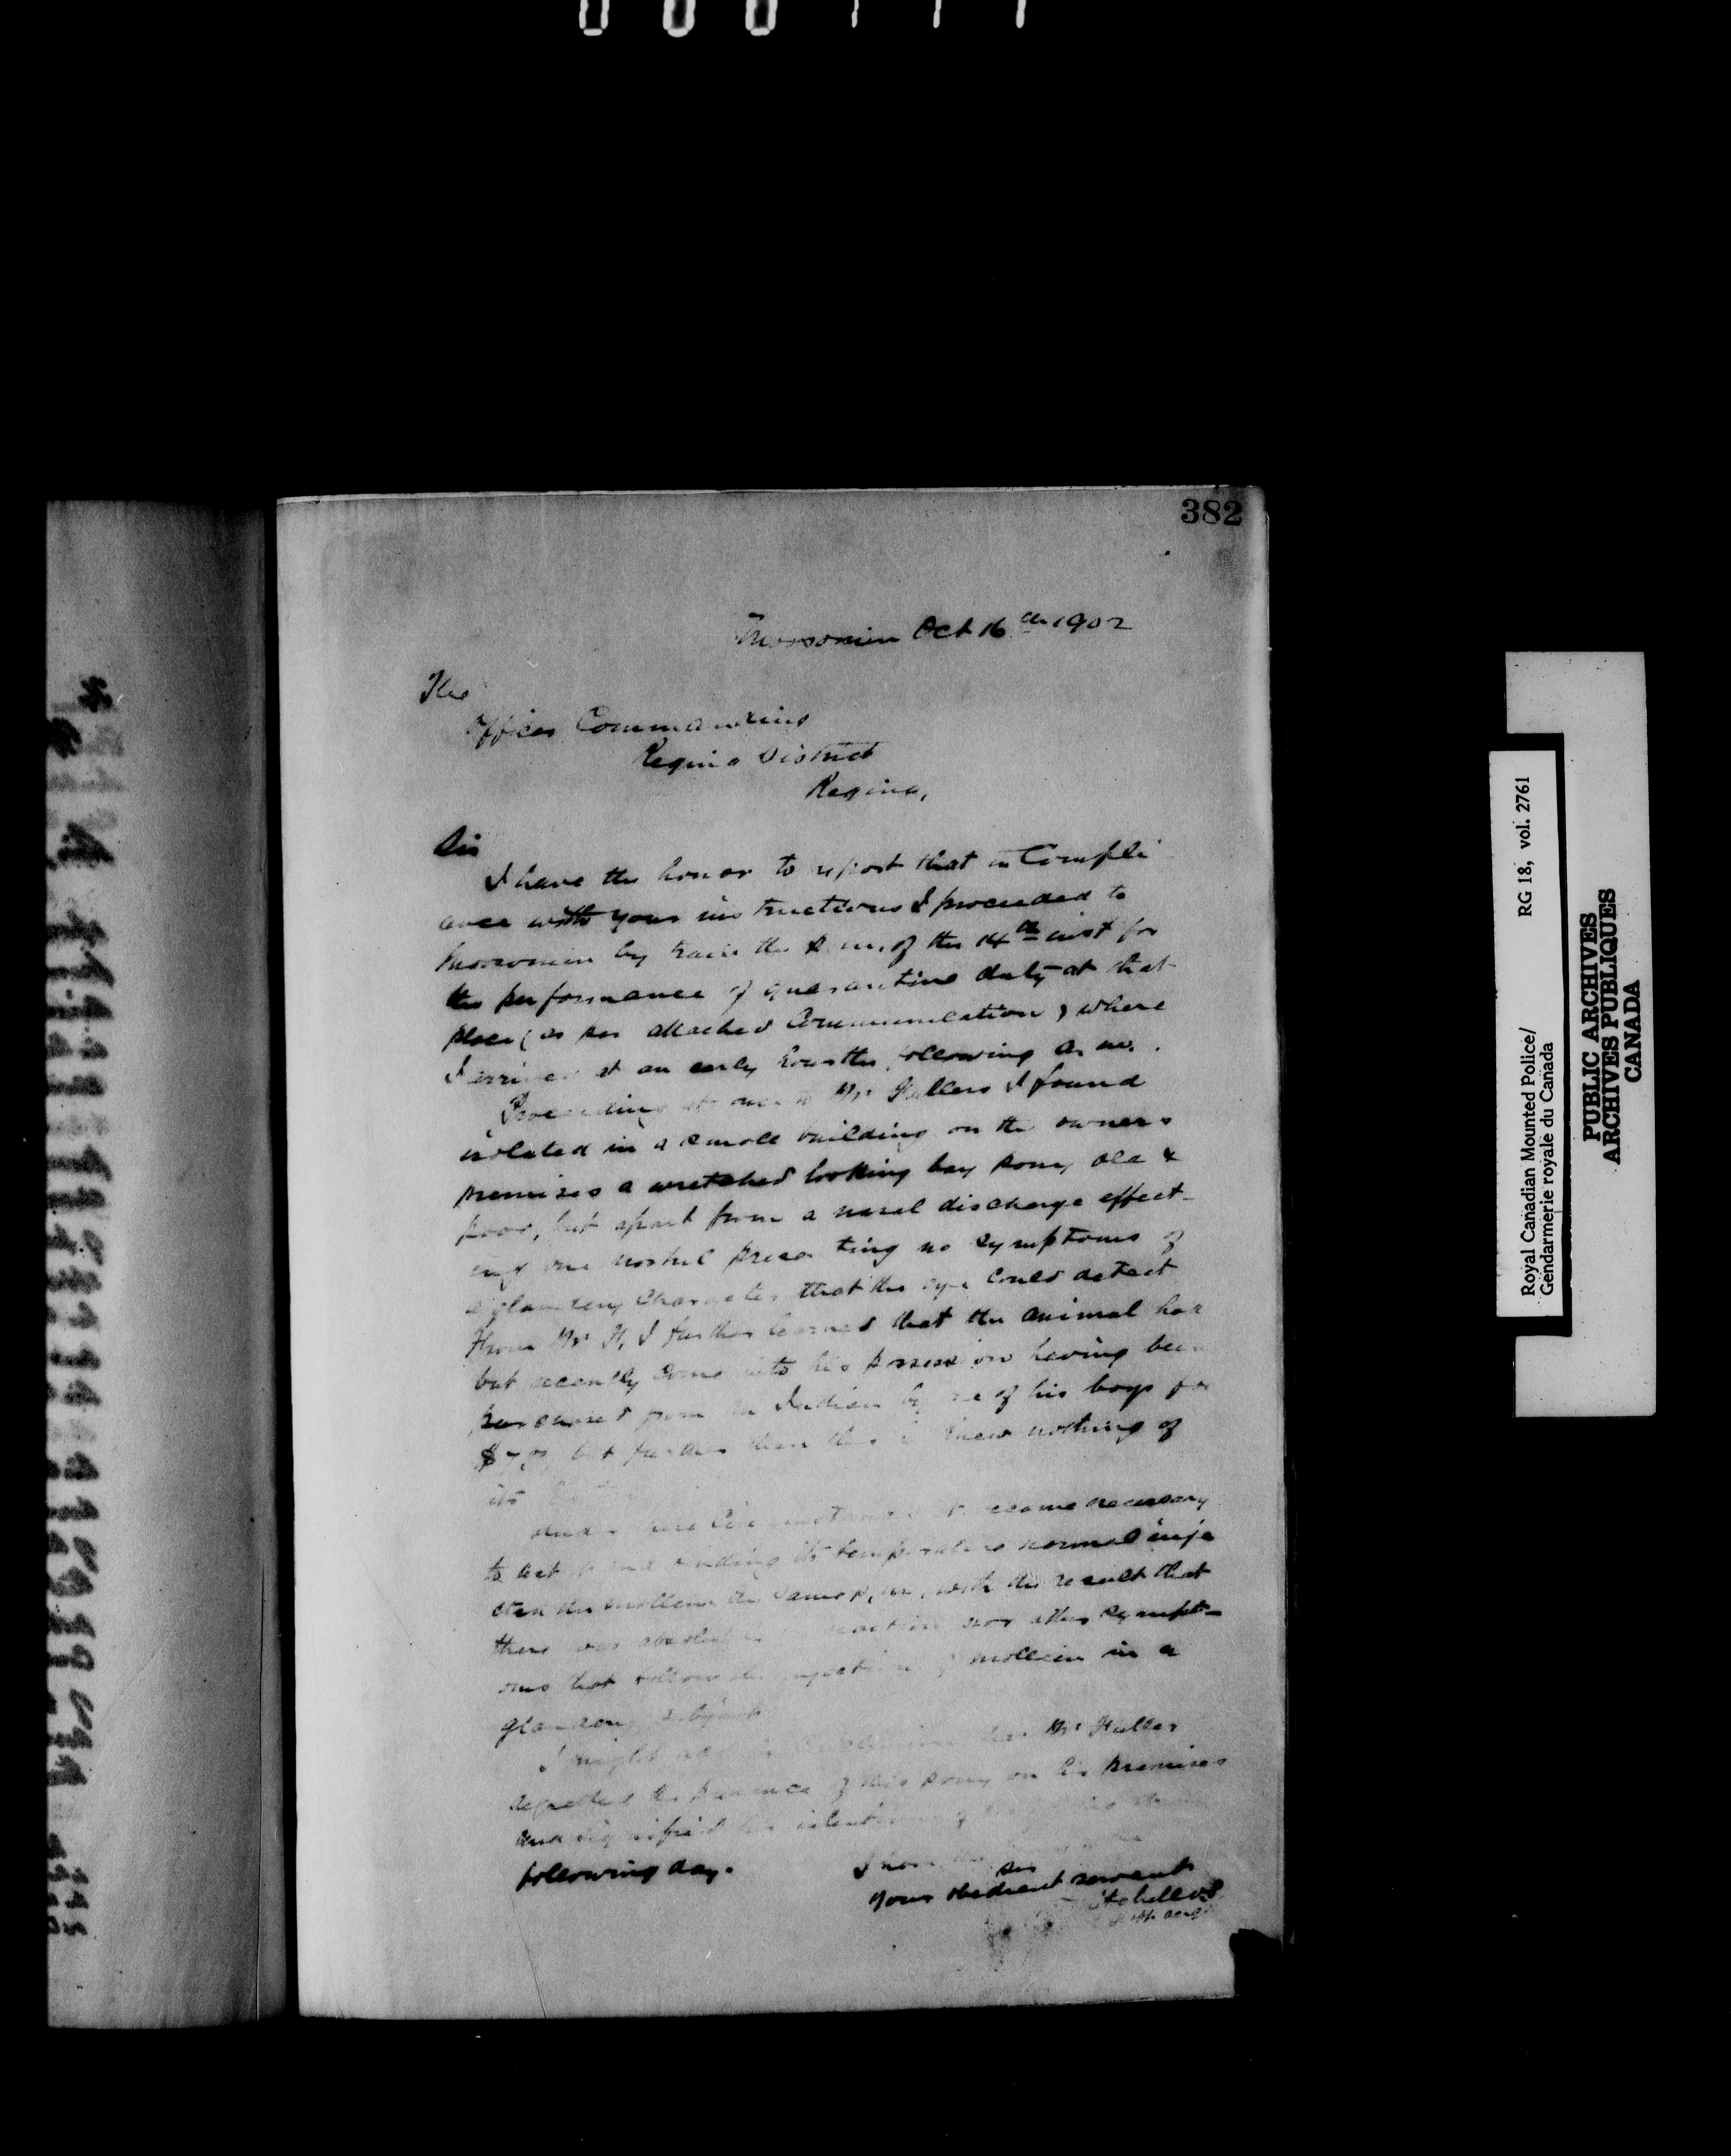 382
Moosomin Oct 16th 1902
The
Officer Commanding
Regina District
Regina,
Sir
I have the honor to report that in Compli
ance with your instructions I proceeded to
Moosomin by train the p.m. of the 14th inst for
the performance of quarantine duty at that
place (as per attached Communication) where
I arrived at an early hour the following a.m.
Proceeding at once to Mr Fullers I found
isolated in a small building on the owners
premises a wretched looking bay pony old &
poor, but apart from a nasal discharge effect-
ing one nostril presenting no symptoms of
a glandery character that the eye could detect
From Mr F, I further learned that the animal had
but recently come into his possession having been
purchased from an Indian by one of his boys for
but further than this he knew nothing of
its
Under these Circumstances it became necessary
to act and finding its temperature normal inje
cted the mallein the same p.m. with the result that
there was absolutely no reaction nor other sympt-
oms that follow the injection of mallein in a
glandery subject
I might add in that Mr Fuller
regretted the presence of this pony on his premises
and signified his intention of the
following day.
I have the
Sir
Your obedient servant
Royal Canadian Mounted Police/ RG 18, vol. 2761
Gendarmerie royale du Canada
PUBLIC ARCHIVES
ARCHIVES PUBLIQUES
CANADA